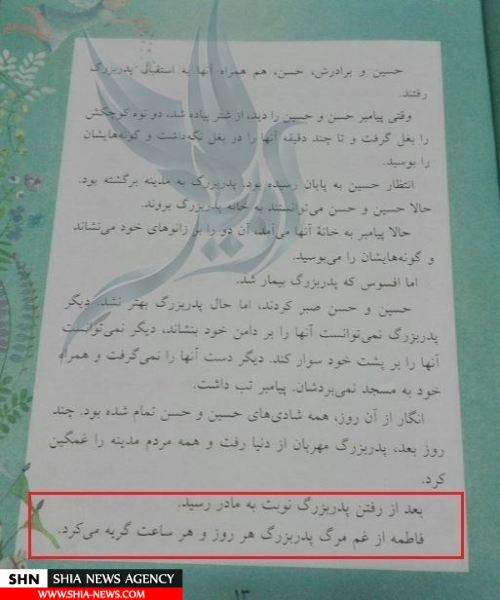 حسین و برادرش، حسن، هم همراه آنها به استقبال پدربزرگ
رفتند.
وقتی پیامبر حسن و حسین را دید، از شتر پیاده شد، دو نوه کوچکش
را بغل گرفت و تا چند دقیقه آنها را در بغل نگه‌داشت و گونه‌هایشان
را بوسید.
انتظار حسین به پایان رسیده بود. پدربزرگ به مدینه برگشته بود.
حالا حسین و حسن می‌توانستند به خانه پدربزرگ بروند.
حالا پیامبر به خانهٔ آنها می‌آمد، آن دو را بر زانوهای خود می‌نشاند
و گونه‌هایشان را می‌بوسید.
اما افسوس که پدربزرگ بیمار شد.
حسین و حسن صبر کردند، اما حال پدربزرگ بهتر نشد. دیگر
پدربزرگ نمی‌توانست آنها را بر دامن خود بنشاند، دیگر نمی‌توانست
آنها را بر پشت خود سوار کند. دیگر دست آنها را نمی‌گرفت و همراه
خود به مسجد نمی‌بردشان. پیامبر تب داشت.
انگار از آن روز، همه شادی‌های حسین و حسن تمام شده بود. چند
روز بعد، پدربزرگ مهربان از دنیا رفت و همه مردم مدینه را غمگین
کرد.
بعد از رفتن پدربزرگ نوبت به مادر رسید.
فاطمه از غم مرگ پدربزرگ هر روز و هر ساعت گریه می‌کرد.
۱۳
SHN SHIA NEWS AGENCY
WWW.SHIA-NEWS.COM